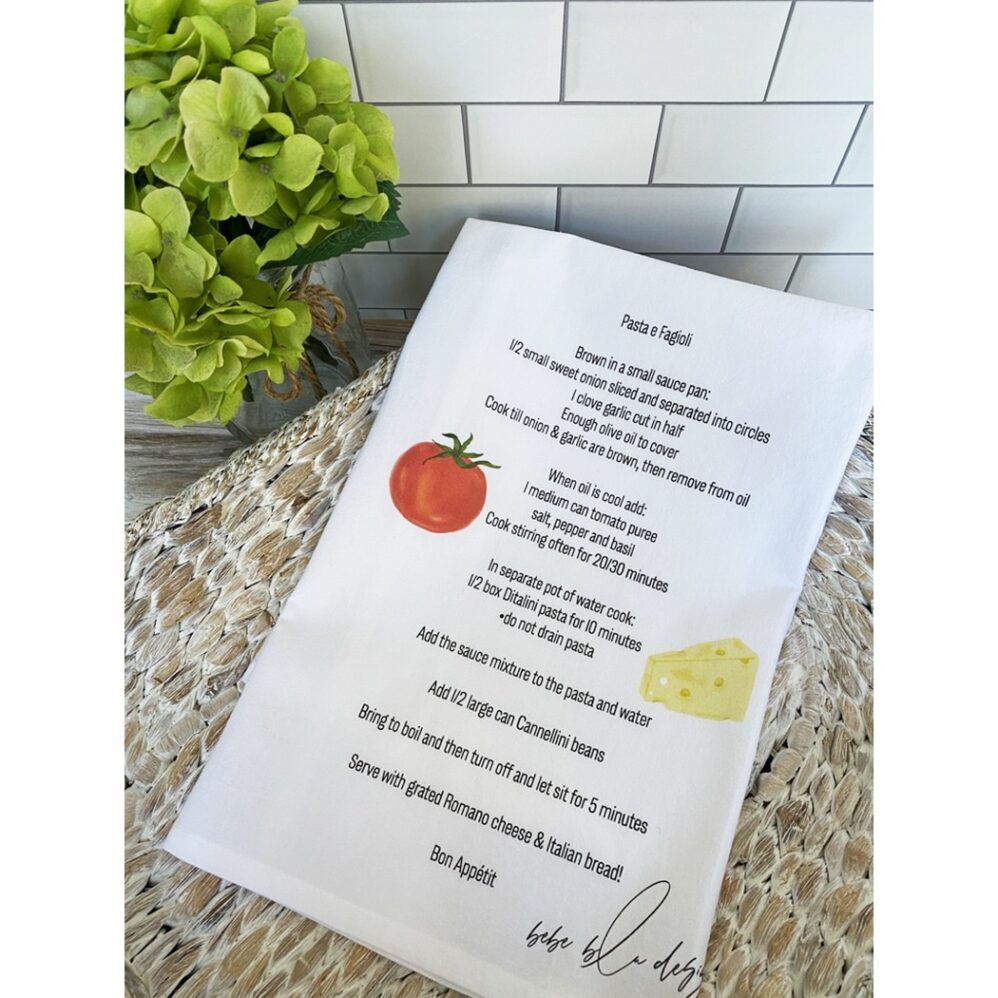 Pasta e Fagioli
Brown in a small sauce pan:
1/2 small sweet onion sliced and separated into circles
1 clove garlic cut in half
Enough olive oil to cover
Cook till onion & garlic are brown, then remove from oil
When oil is cool add:
1 medium can tomato puree
salt, pepper and basil
Cook stirring often for 20/30 minutes
In separate pot of water cook:
1/2 box Ditalini pasta for 10 minutes
•do not drain pasta
Add the sauce mixture to the pasta and water
Add 1/2 large can Cannellini beans
Bring to boil and then turn off and let sit for 5 minutes
Serve with grated Romano cheese & Italian bread!
Bon Appétit
bebe bla